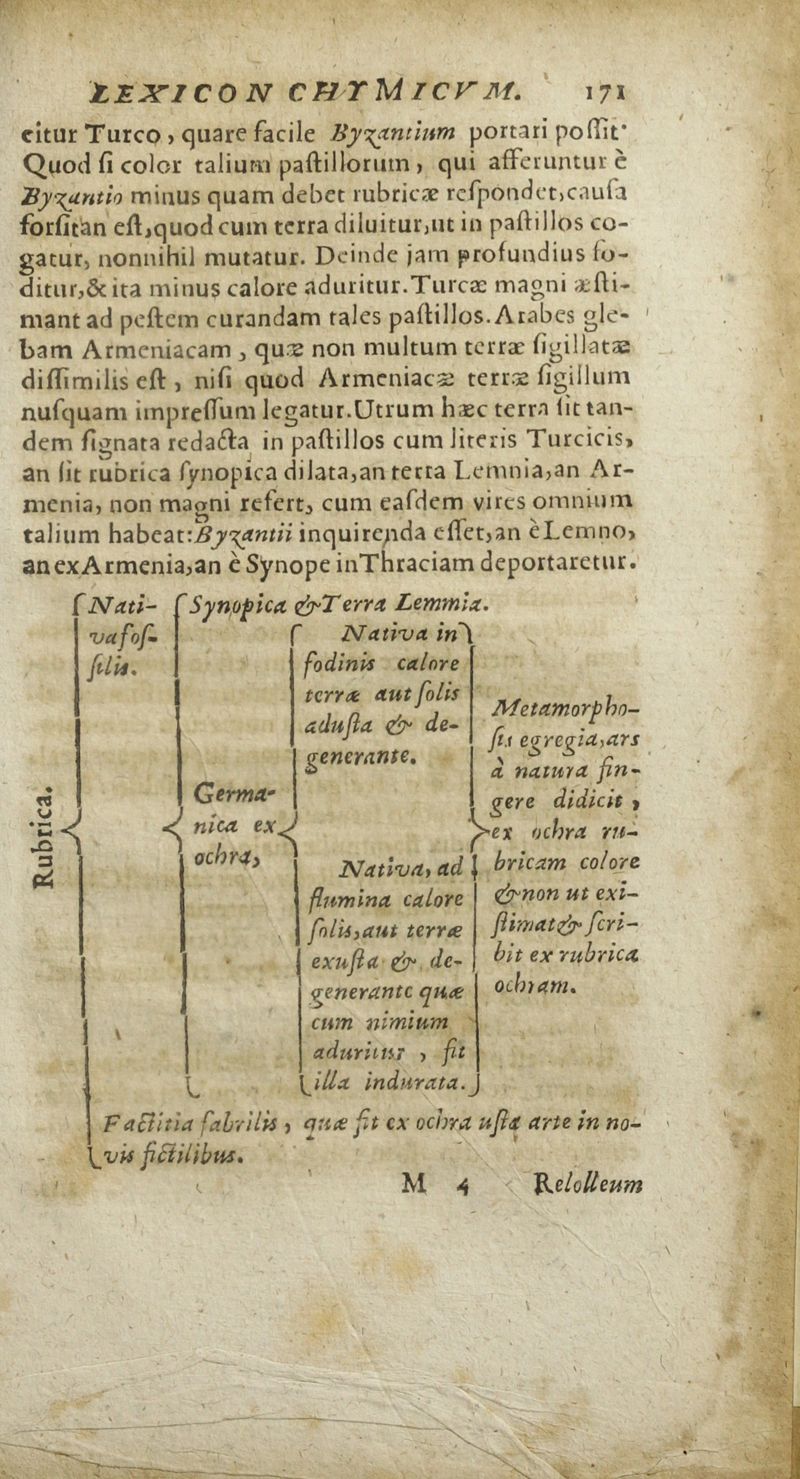 LEXICON CHYMICVM. 171
citur Turco, quare facile Byzantium portari poſſit·
Quod ſi color talium paſtillorum, qui afferuntur è
Byzantio minus quam debet rubricæ reſpondet,cauſa
forſitan eſt,quod cum terra diluitur,ut in paſtillos co-
gatur, nonnihil mutatur. Deinde jam profundius fo-
ditur,& ita minus calore aduritur.Turcæ magni æſti-
mant ad peſtem curandam tales paſtillos.Arabes gle-
bam Armeniacam, quæ non multum terræ ſigillatæ
diſſimilis eſt, niſi quod Armeniacæ terræ ſigillum
nuſquam impreſſum legatur.Utrum hæc terra ſit tan-
dem ſignata redacta in paſtillos cum literis Turcicis,
an ſit rubrica ſynopica dilata,an terra Lemnia,an Ar-
menia, non magni refert, cum eaſdem vires omnium
talium habeat:Byzantii inquirenda eſſet,an èLemno,
an exArmenia,an è Synope inThraciam deportaretur.
Rubrica.
Nati-
va foſ-
ſilis.
Synopica &Terra Lemmia.
Germa-
nica ex
ochra,
Nativa in
fodinis calore
terræ aut ſolis
aduſta & de-
generante.
Nativa, ad
flumina calore
ſolis,aut terræ
exuſta & de-
generante quæ
cum nimium
aduritur, fit
illa indurata.
Metamorpho-
ſis egregia,ars
à natura fin-
gere didicit,
ex ochra ru-
bricam colore
& non ut exi-
ſtimat & ſcri-
bit ex rubrica
ochram.
Factitia fabrilis, quæ fit ex ochra uſta arte in no-
vis fictilibus.
M 4 Relolleum